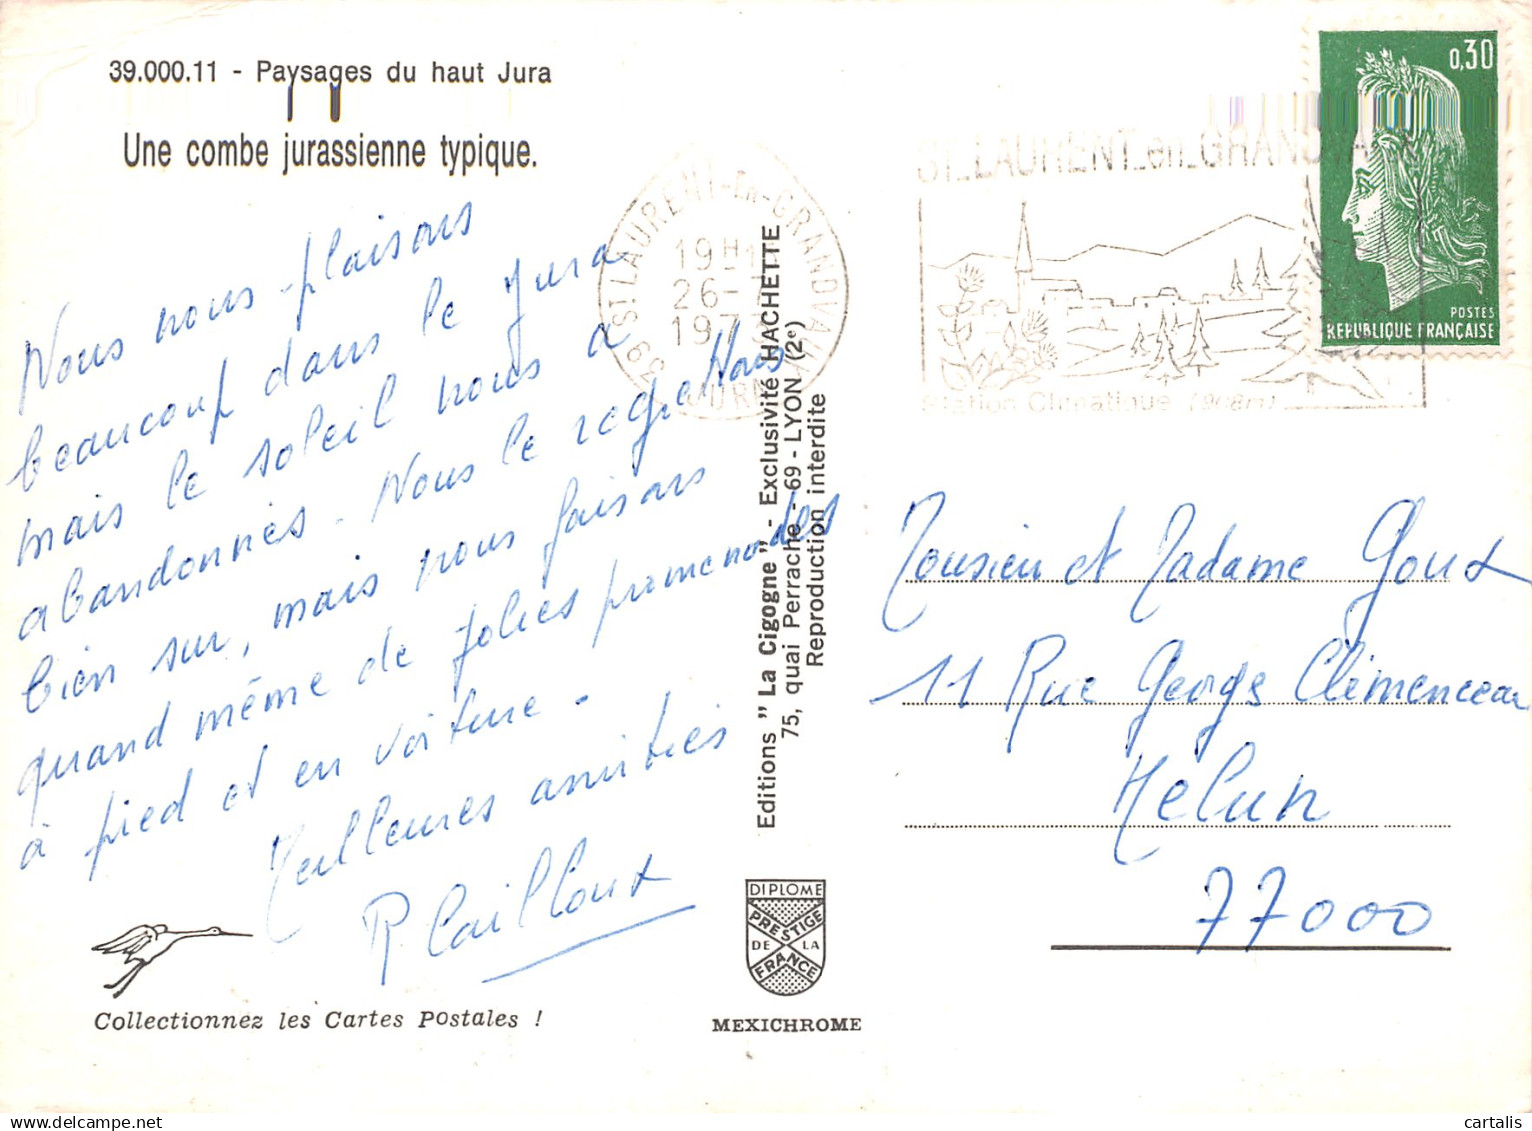 39.000.11 - Paysages du haut Jura
Une combe jurassienne typique.
Nous nous plaisons
beaucoup dans le Jura
mais le soleil nous a
abandonnés. Nous le regrettons
bien sur, mais nous faisons
quand même de jolies promenades
à pied et en voiture.
Meilleures amitiés
P. Cailloux
Collectionnez les Cartes Postales !
Editions "La Cigogne" - Exclusivité HACHETTE
75, quai Perrache - 69 - LYON (2e)
Reproduction interdite
DIPLOME
PRESTIGE
DE LA
FRANCE
MEXICHROME
39 ST LAURENT-EN-GRANDVAUX
19H
26-
197
JURA
ST_LAURENT_en_GRANDVAUX
Station Climatique (908m)
0,30
POSTES
REPUBLIQUE FRANÇAISE
Monsieur et Madame Goux
11 Rue Georges Clémenceau
Melun
77000
cartalis | Delcampe.net